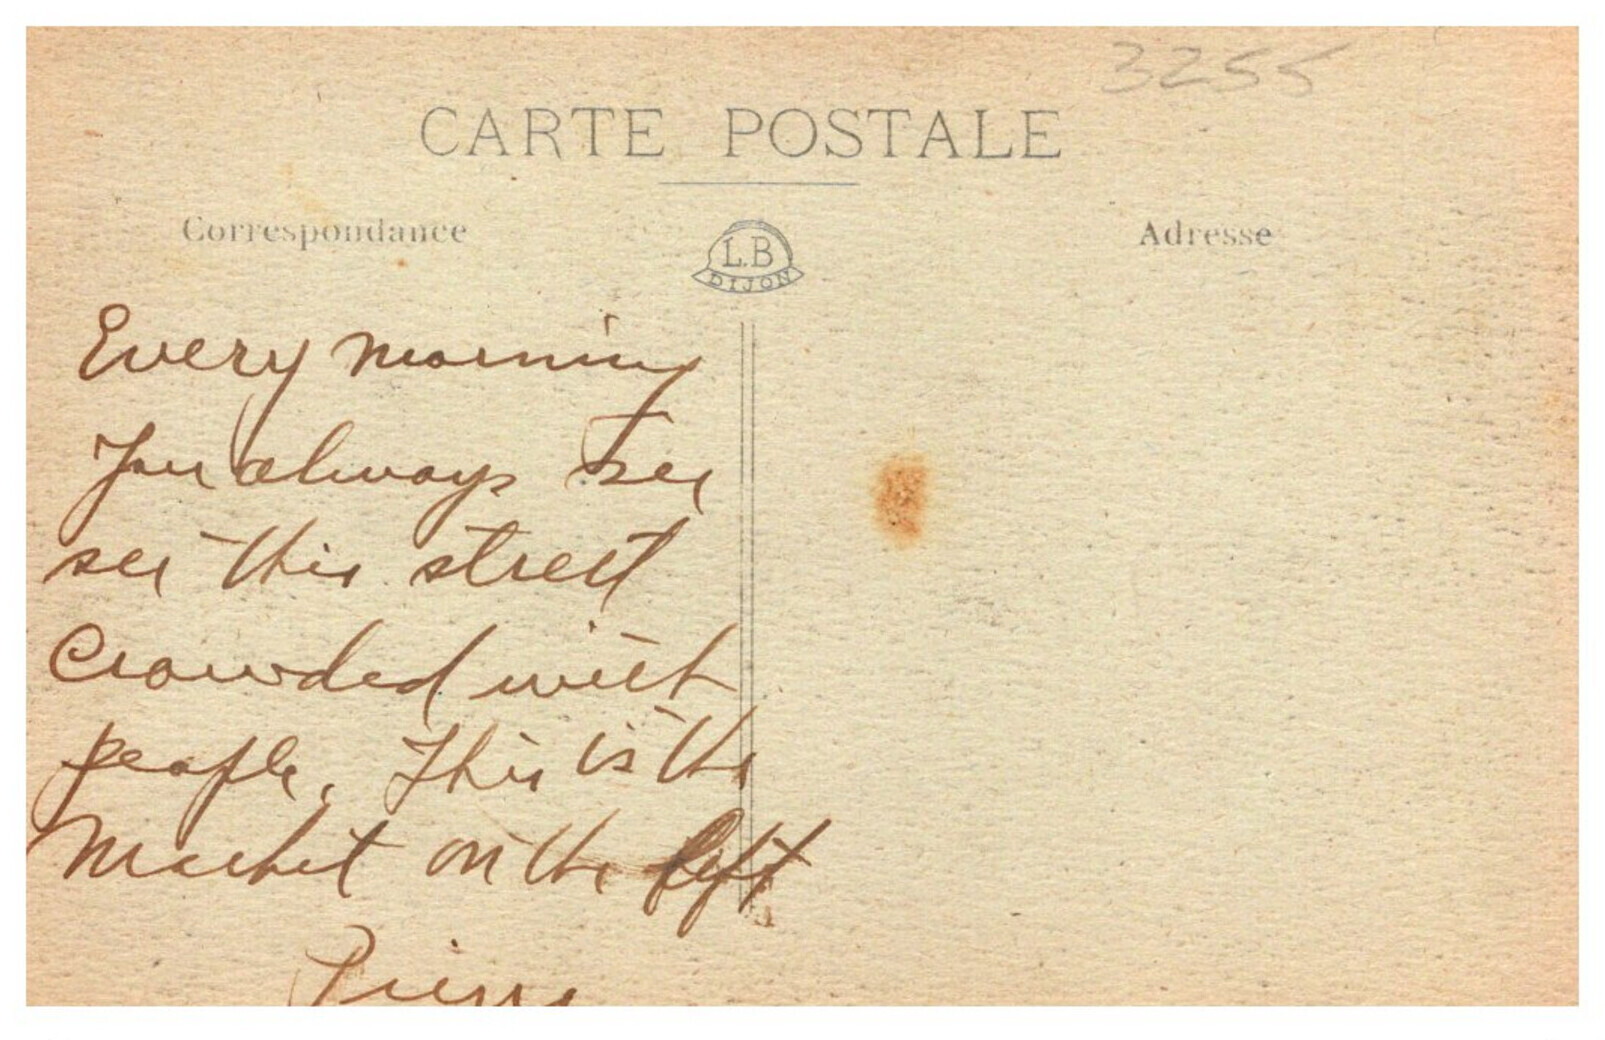 3255
CARTE POSTALE
Correspondance
L.B
DIJON
Adresse
Every morning
You always see
see this street
Crowded with
people. This is the
Market on the left
Pierre